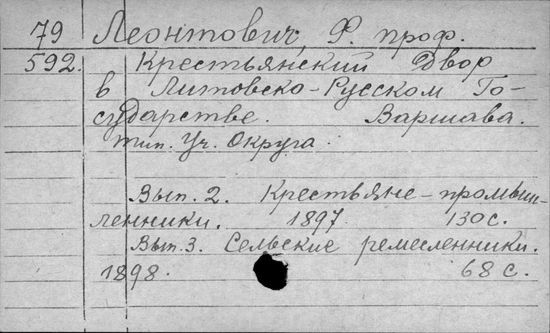 79 Леонтович, Ф. проф.
592. Крестьянский Двор
в Литовско-Русском Го-
сударстве. Варшава.
тип. Уч. Округа.
Вып. 2. Крестьяне-промыш-
ленники. 1897 130 с.
Вып. 3. Сельские ремесленники.
1898. 68 с.